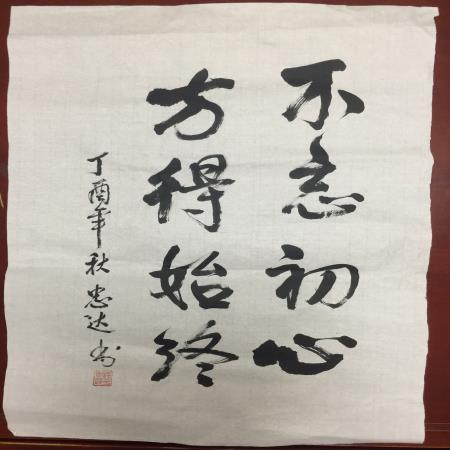 不忘初心
方得始终
丁酉年秋忠达书